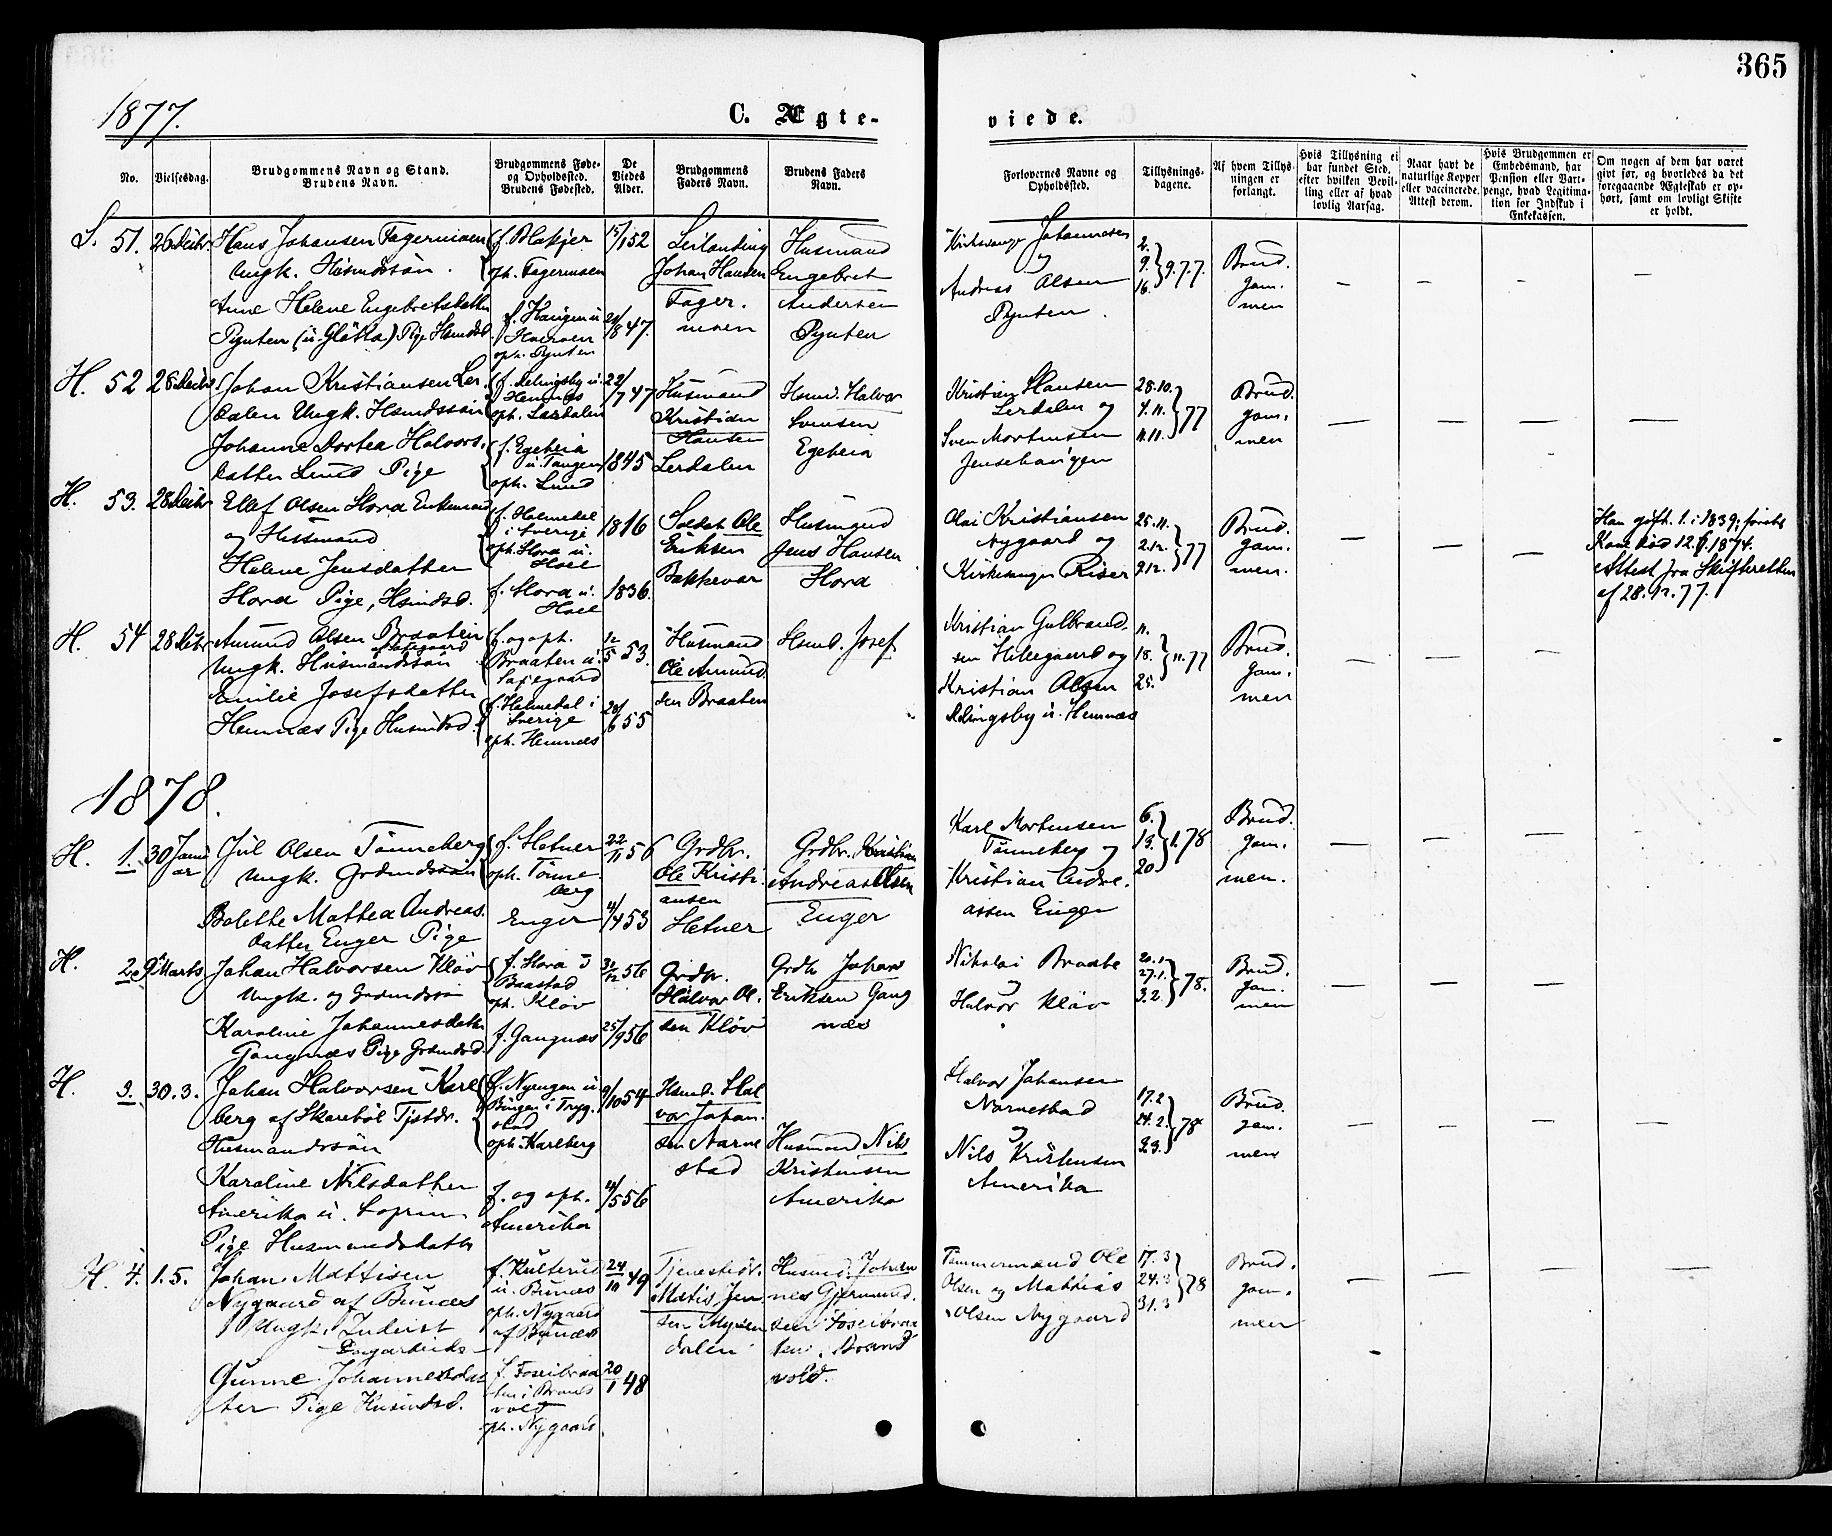 365
1877.
C. Ægte-
viede.
No.
Vielsesdag.
Brudgommens Navn og Stand.
Brudens Navn.
Brudgommens Føde-
og Opholdssted.
Brudens Fødested.
De
Viedes
Alder.
Brudgommens
Faders Navn.
Brudens Faders
Navn.
Forlovernes Navne og
Opholdssted.
Tillysnings-
dagene.
Af hvem Tillys-
ningen er
forlangt.
Hvis Tillysning ei
har fundet Sted,
efter hvilken Bevil-
ling eller af hvad
lovlig Aarsag.
Naar havt de
naturlige Kopper
eller vaccinerede.
Attest derom.
Hvis Brudgommen er
Embedsmand, har
Pension eller Vart-
penge, hvad Legitima-
tion for Indskud i
Enkekassen.
Om nogen af dem har været
givt før, og hvorledes da det
foregaaende Ægteskab er op-
hørt, samt om lovligt Skifte
er holdt.
S. 51. 26 Decbr.
Hans Johansen Fagermoen
Ungk. Husmdssøn.
Anne Helene Engebretsdatter
Pynten (u. Glåtta) Pige Hsmdsd.
f. Blakjer
oph. Fagermoen
f. Haugen u.
oph. Pynten
15/1 52
21/8 47.
Leilending
Johan Hansen
Fager-
moen
Husmand
Engebret
Andersen
Pynten
Kirkesanger Johannesen
og
Andreas Olsen
Pynten.
2.
9.
16.
Brud-
gom-
men
H. 52 28 Decbr
Johan Kristiansen Ler-
dalen Ungk. Hsmdssøn
Johanne Dortea Halvors-
datter Lund Pige
f. Delingsby u.
Hemnes
oph. Lerdalen
f. Egeheia
u. Tangen
oph. Lund
22/7 47
1845
Husmand
Kristian
Hansen
Lerdalen
Hsmd. Halvor
Svensen
Egeheia
Kristian Hansen
Lerdalen og
Sven Mortensen
Jensehaugen
28.10.
4.11.
11.11.
77
Brud-
gom-
men
H. 53. 28 Decbr
Ellef Olsen Hora Enkemand
og Husmand
Helene Jensdatter
Hora Pige, Hsmdsd.
f. Holmedal
i Sverige
oph. Hora u.
f. Hora u.
1816
1836.
Soldat Ole
Eriksen
Bakkevar
Husmand
Jens Hansen
Hora
Olai Kristiansen
Nygaard og
Kirkesanger Riser
25.11.
2.12.
9.12.
77
Brud-
gom-
men.
Han gift 1. i 1839; første
Kone død 12.6.1874.
Attest fra Skifteretten
af 28.12.77.
H. 54 28 Decbr
Amund Olsen Braaten
Ungk. Husmandssøn
Emilie Josefsdatter
Hemnæs Pige Husmdsd.
f. og oph.
Braaten u.
f. Holmedal i
Sverige
oph. Hemnæs
12/5 53.
28/6 55
Husmand
Ole Amund-
sen Braaten
Hsmd. Josef
Kristian Gulbrand-
sen Hillegaard og
Kristian Olsen
Delingsby u. Hemnæs
11.
18.
25.
11.77
Brud-
gom-
men
1878.
H. 1. 30 Janu-
ar
Jul Olsen Tønneberg
Ungk. Grdmdssøn
Bolette Mathea Andreas-
datter Enger Pige
f. Hetner
oph. Tønne-
berg
Enger
22/11 56
4/4 53
Grdbr.
Ole Kristi-
ansen
Hetner
Grdbr.
Andreas Olsen
Enger
Karl Mortensen
Tønneberg og
Kristian Andre-
assen Enger
6.
13.
20.
1.78
Brud-
gom-
men.
H. 2. 9 Marts
Johan Halvorsen Kløv
Ungk. og Grdmdssøn
Karoline Johannesdatter
Gangnæs Pige Grdmdsd.
f. Hora i
Baastad
oph. Kløv
f. Gangnæs
31/12 56
25/9 56
Grdbr.
Halvor Ol-
sen Kløv
Grdbr Johan
Eriksen Gang-
næs
Nikolai Braate
og
Halvor Kløv
20.1
27.1.
3.2.
78.
Brud-
gom-
men
H. 3. 30.3.
Johan Halvorsen Karl-
berg af Skarebøl Tjstdr.
Husmandssøn
Karoline Nilsdatter
Amerika u.
Pige Husmandsdatter
f. Nyengen u.
Bingen i Tryg-
stad
oph. Karlberg
f. og oph.
Amerika
9/10 54
14/5 56
Hsmd. Hal-
vor Johan-
sen Narve-
stad
Husmand Nils
Kristensen
Amerika
Halvor Johansen
Narvestad
og
Nils Kristensen
Amerika
17.2
24.2.
3.3.
78
Brud-
gom-
men
H. 4. 1.5.
Johan Mattisen
Nygaard af Bunæs
Ungk. Inderst
Dagarbeider
Gunne Johannesdat-
ter Pige Husmdsd.
f. Kulterud
u. Bunæs
oph. Nygaard
af Bunæs
oph. Nygaard.
24/10 49
20/1 48
Tjenestedr.
Matis Jen-
sen Myren-
dalen
Husmd. Johan-
nes Gjermund-
sen
vold.
Tømmermand Ole
Olsen og Mathias
Olsen Nygaard
17.3
24.3
31.3
78
Brud-
gom-
men